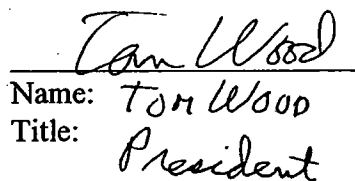 Tom Wood
Name: TOM WOOD
Title:
President